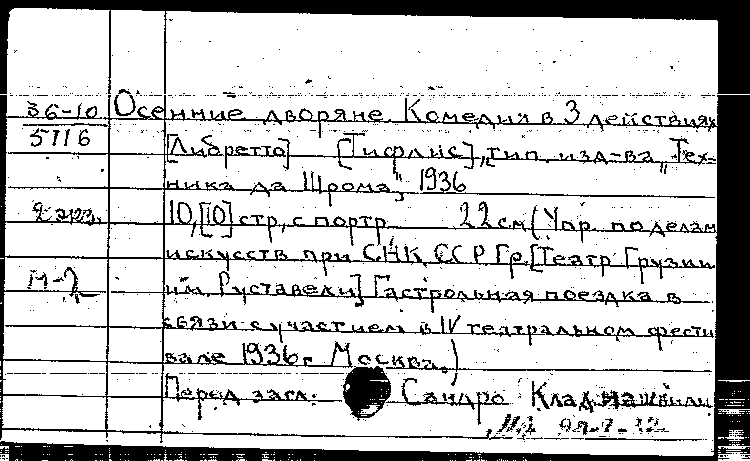 36-10
5116
Осенние дворяне. Комедия в 3 действиях
[Либретто] [Тифлис], тип. изд-ва „Тех-
ника да Шрома", 1936
2 экз. 10, [10] стр., с портр. 22 см (Упр. по делам
искусств при СНК ССР Гр. [Театр Грузии
М-2 им. Руставели] Гастрольная поездка в
связи с участием в IV театральном фести
вале 1936 г Москва.)
Перед загл: Сандро Клад иашвили